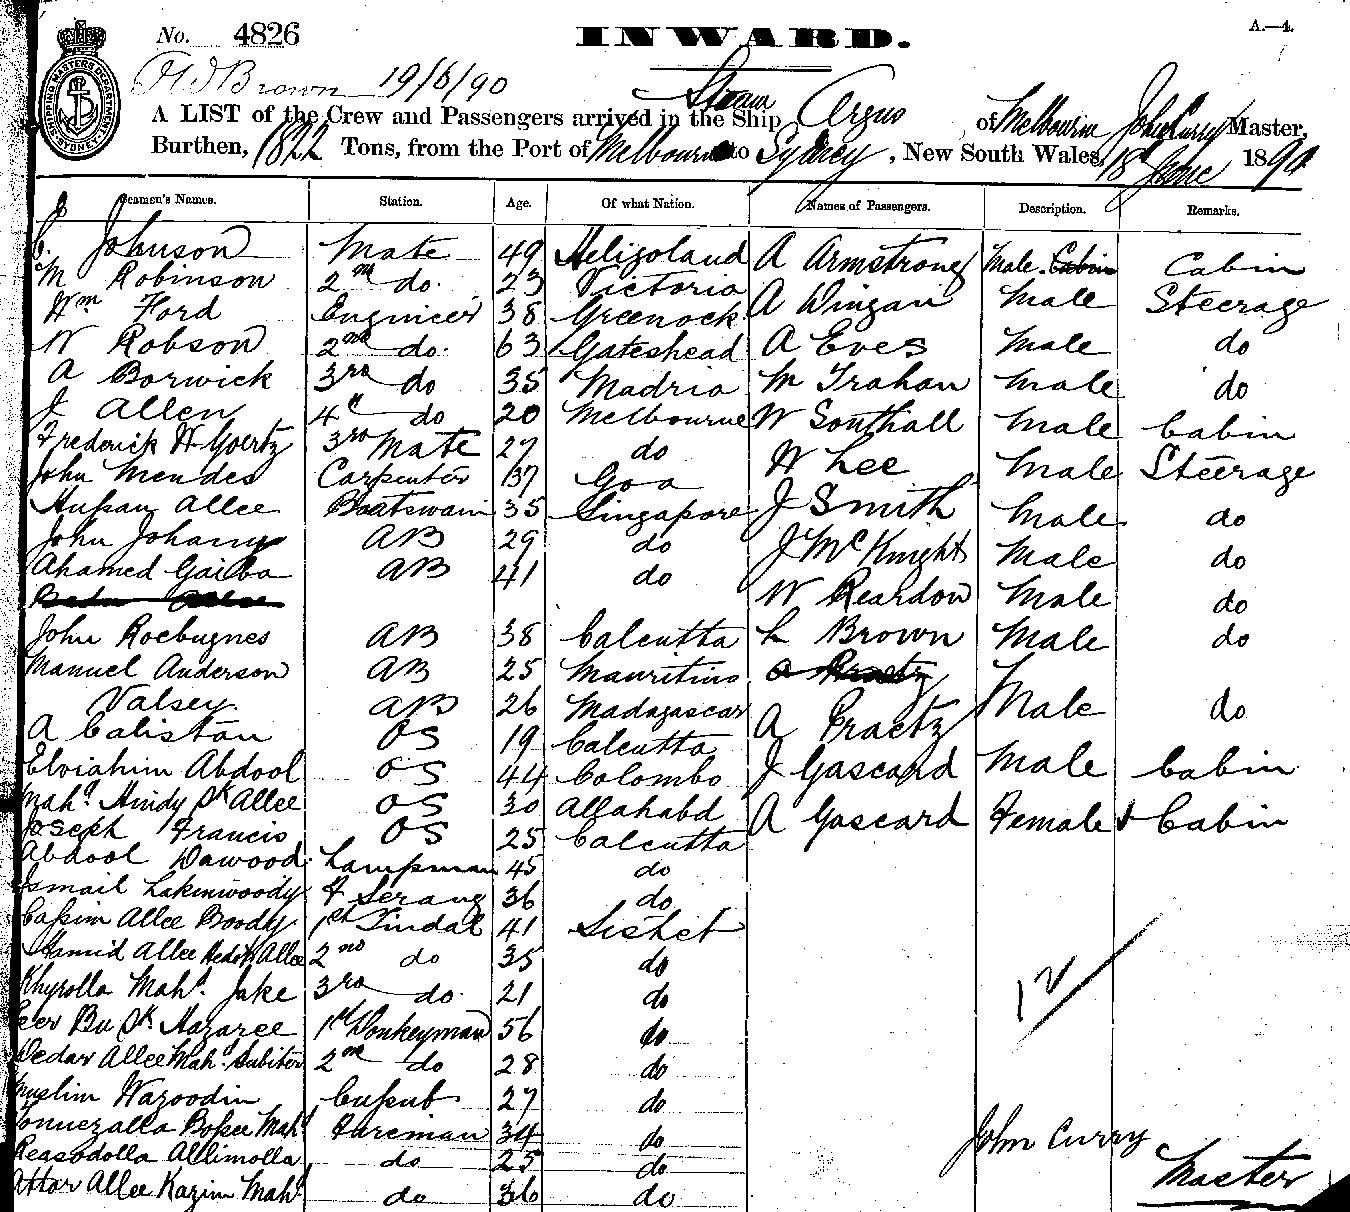 No. 4826 INWARD. A.—4.
SHIPPING MASTERS DEPARTMENT SYDNEY
Brown 19/6/90
A LIST of the Crew and Passengers arrived in the Ship Steam Argus of Melbourne John Curry Master,
Burthen, 1822 Tons, from the Port of Melbourne to Sydney, New South Wales, 18 June 1890
Seamen's Names. Station. Age. Of what Nation. Names of Passengers. Description. Remarks.
C. Johnson Mate 49 Heligoland A Armstrong Male Cabin Cabin
M Robinson 2nd do. 23 Victoria A Wingan Male Steerage
Wm Ford Engineer 38 Greenock
W Robson 2nd do. 63 Gateshead A Eves Male do
A Borwick 3rd do 35 Madria M Trahan Male do
J Allen 4th do 20 Melbourne W Southall Male Cabin
Frederick W Goertz 3rd Mate 27 do W Lee Male Steerage
John Mendes Carpenter 37 Goa
Hussan Allee Boatswain 35 Singapore J Smith Male do
John Johanny AB 29 do J McKnight Male do
Ahamed Gaiba AB 41 do W Reardon Male do
John Roebugnes AB 38 Calcutta L Brown Male do
Manuel Anderson AB 25 Mauritius
Valsey AB 26 Madagascar A Praetz Male do
A Calistan OS 19 Calcutta
Elviahim Abdool OS 44 Colombo J Gascard Male Cabin
Mahd Hindy Sk Allee OS 30 Allahabd A Gascard Female Cabin
Joseph Francis OS 25 Calcutta
Abdool Dawood Lampman 45 do
Ismail Lakinwoody F Serang 36 do
Cassim Allee Boody 1st Tindal 41 Sishet
Hamid Allee Allee 2nd do 35 do
Khyrolla Mahd. Jake 3rd do. 21 do
Peer Bu Sk. Hazaree 1st Donkeyman 56 do
Dedar Allee Mahd. Subiter 2nd do 28 do
Muslim Wazoodin 27 do
Bossee Mahd Fireman 34 do John Curry
Reasodolla Allimolla do 25 do Master
Attar Allee Kazim Mahd do 36 do